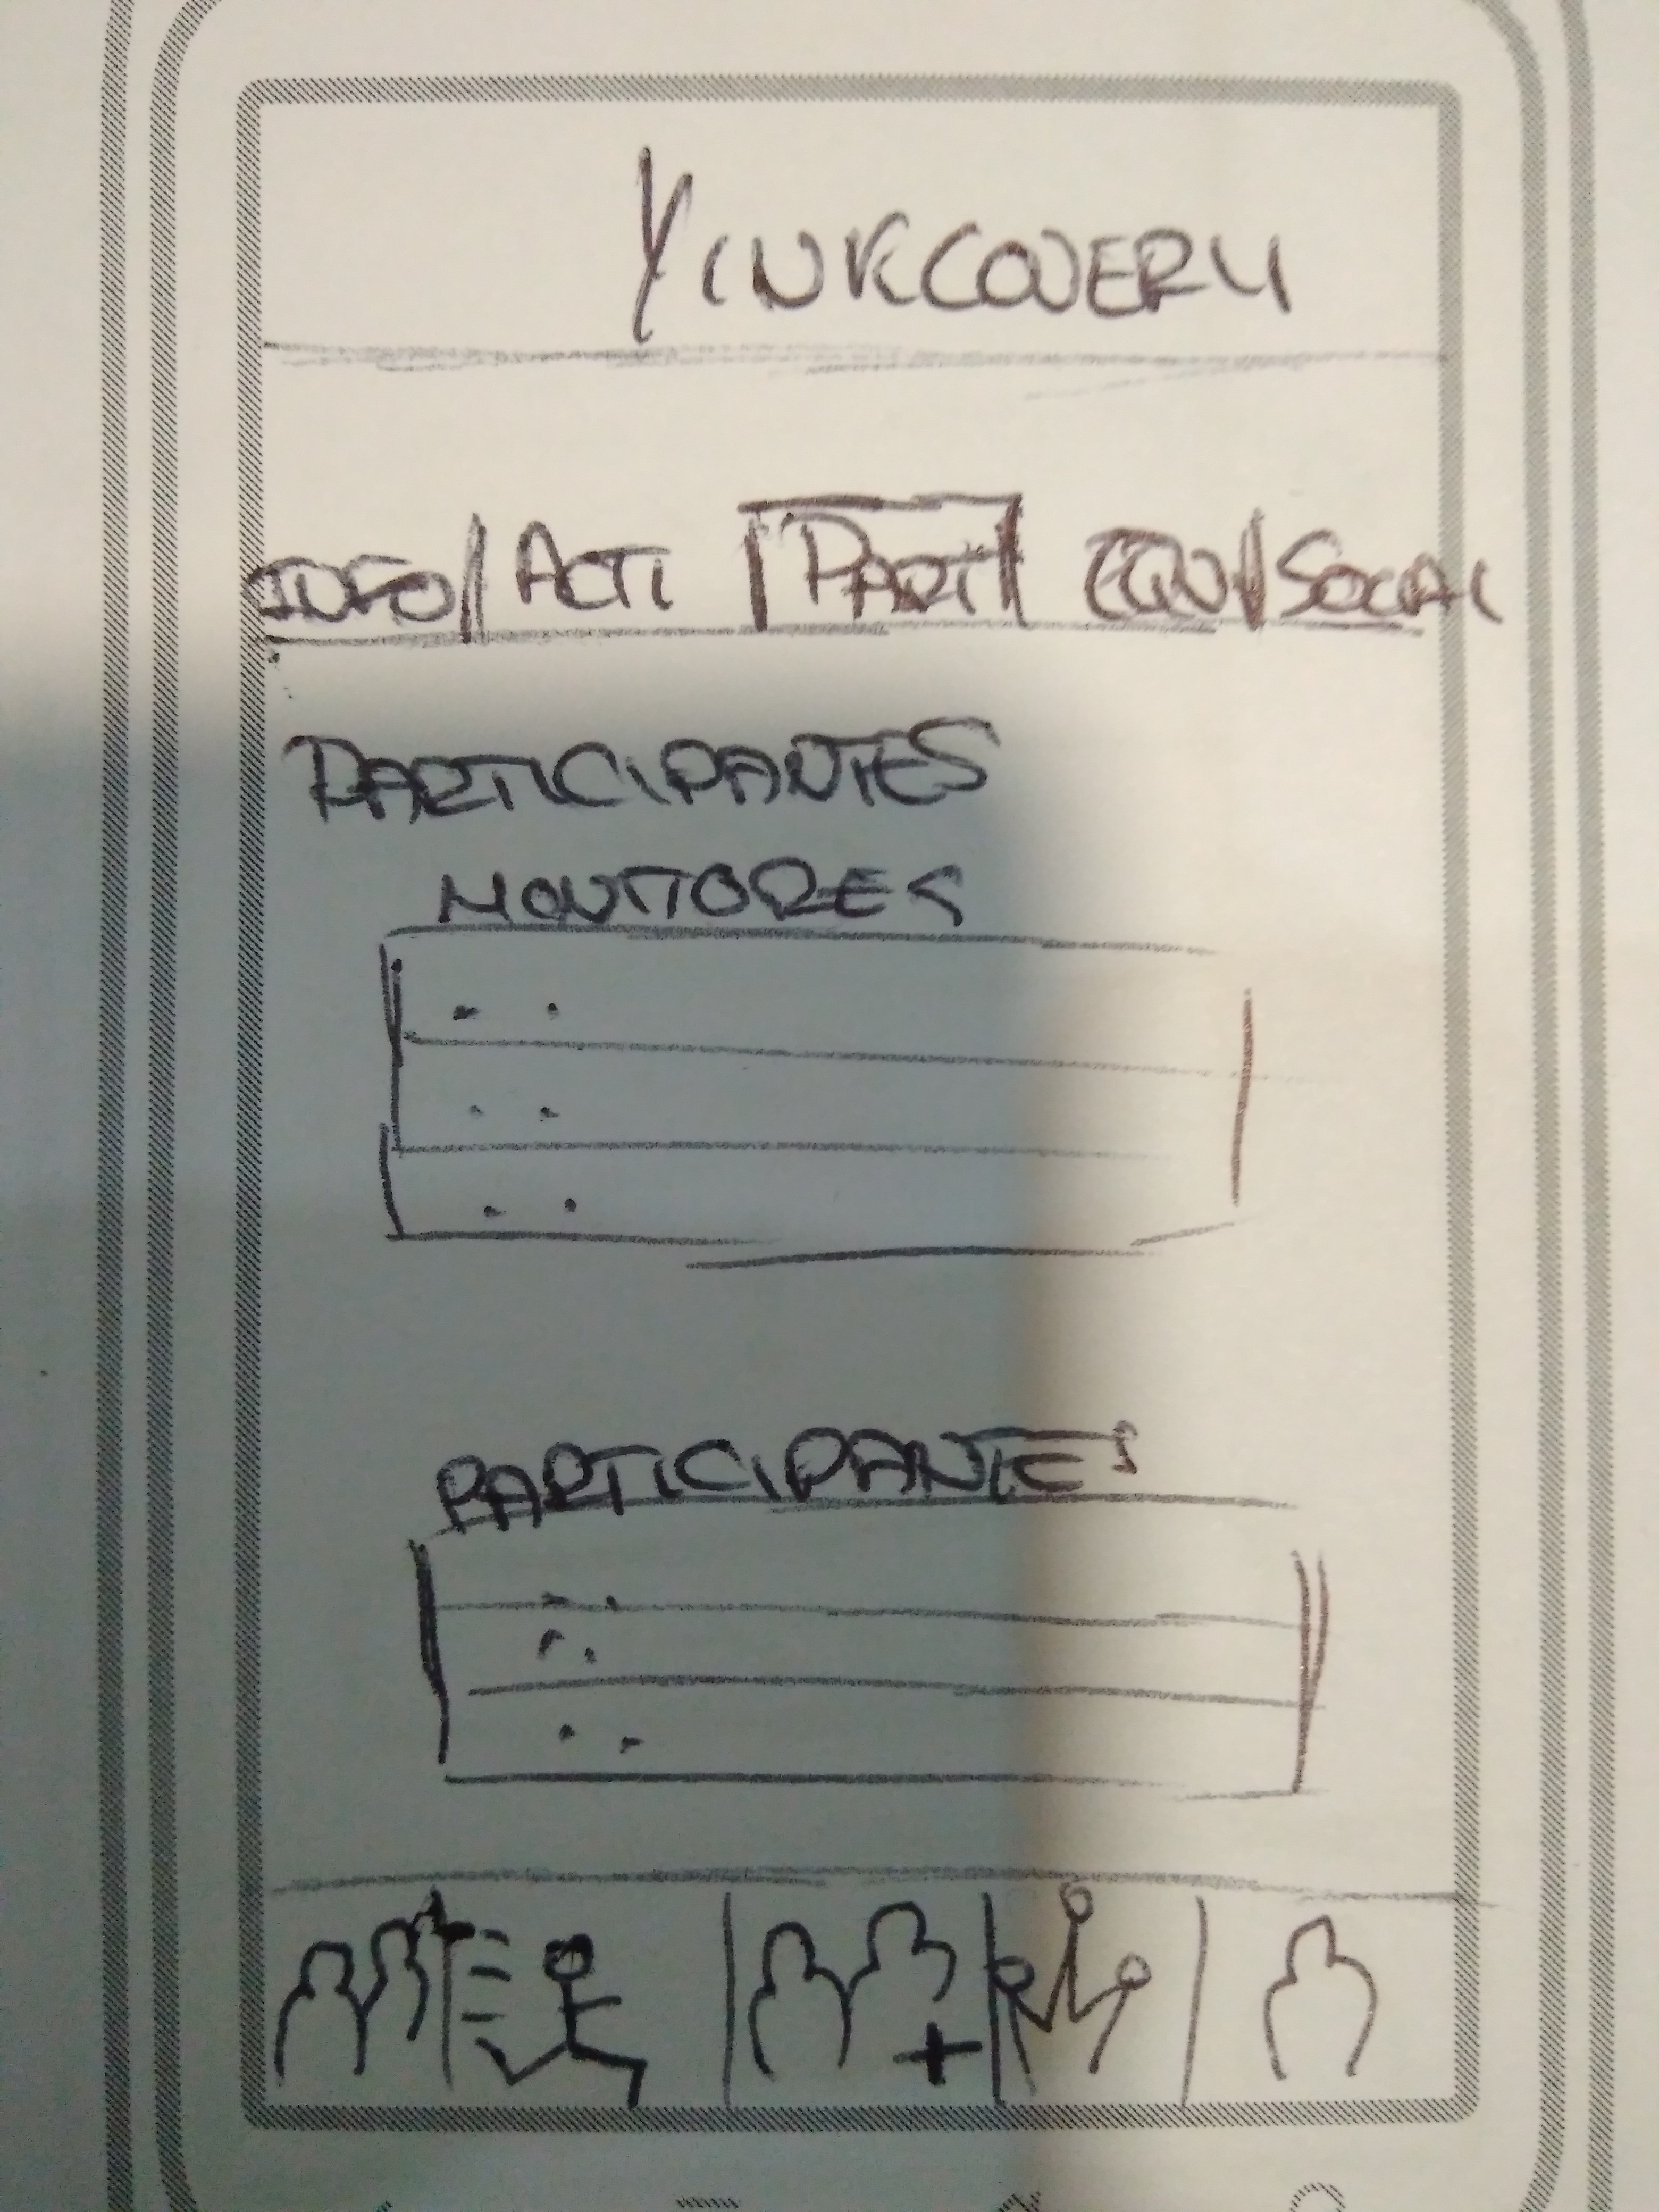 YINKCOVERY
INFO | ACTI | PART | EQUI | SOCIAL
PARTICIPANTES
MONITORES
PARTICIPANTES